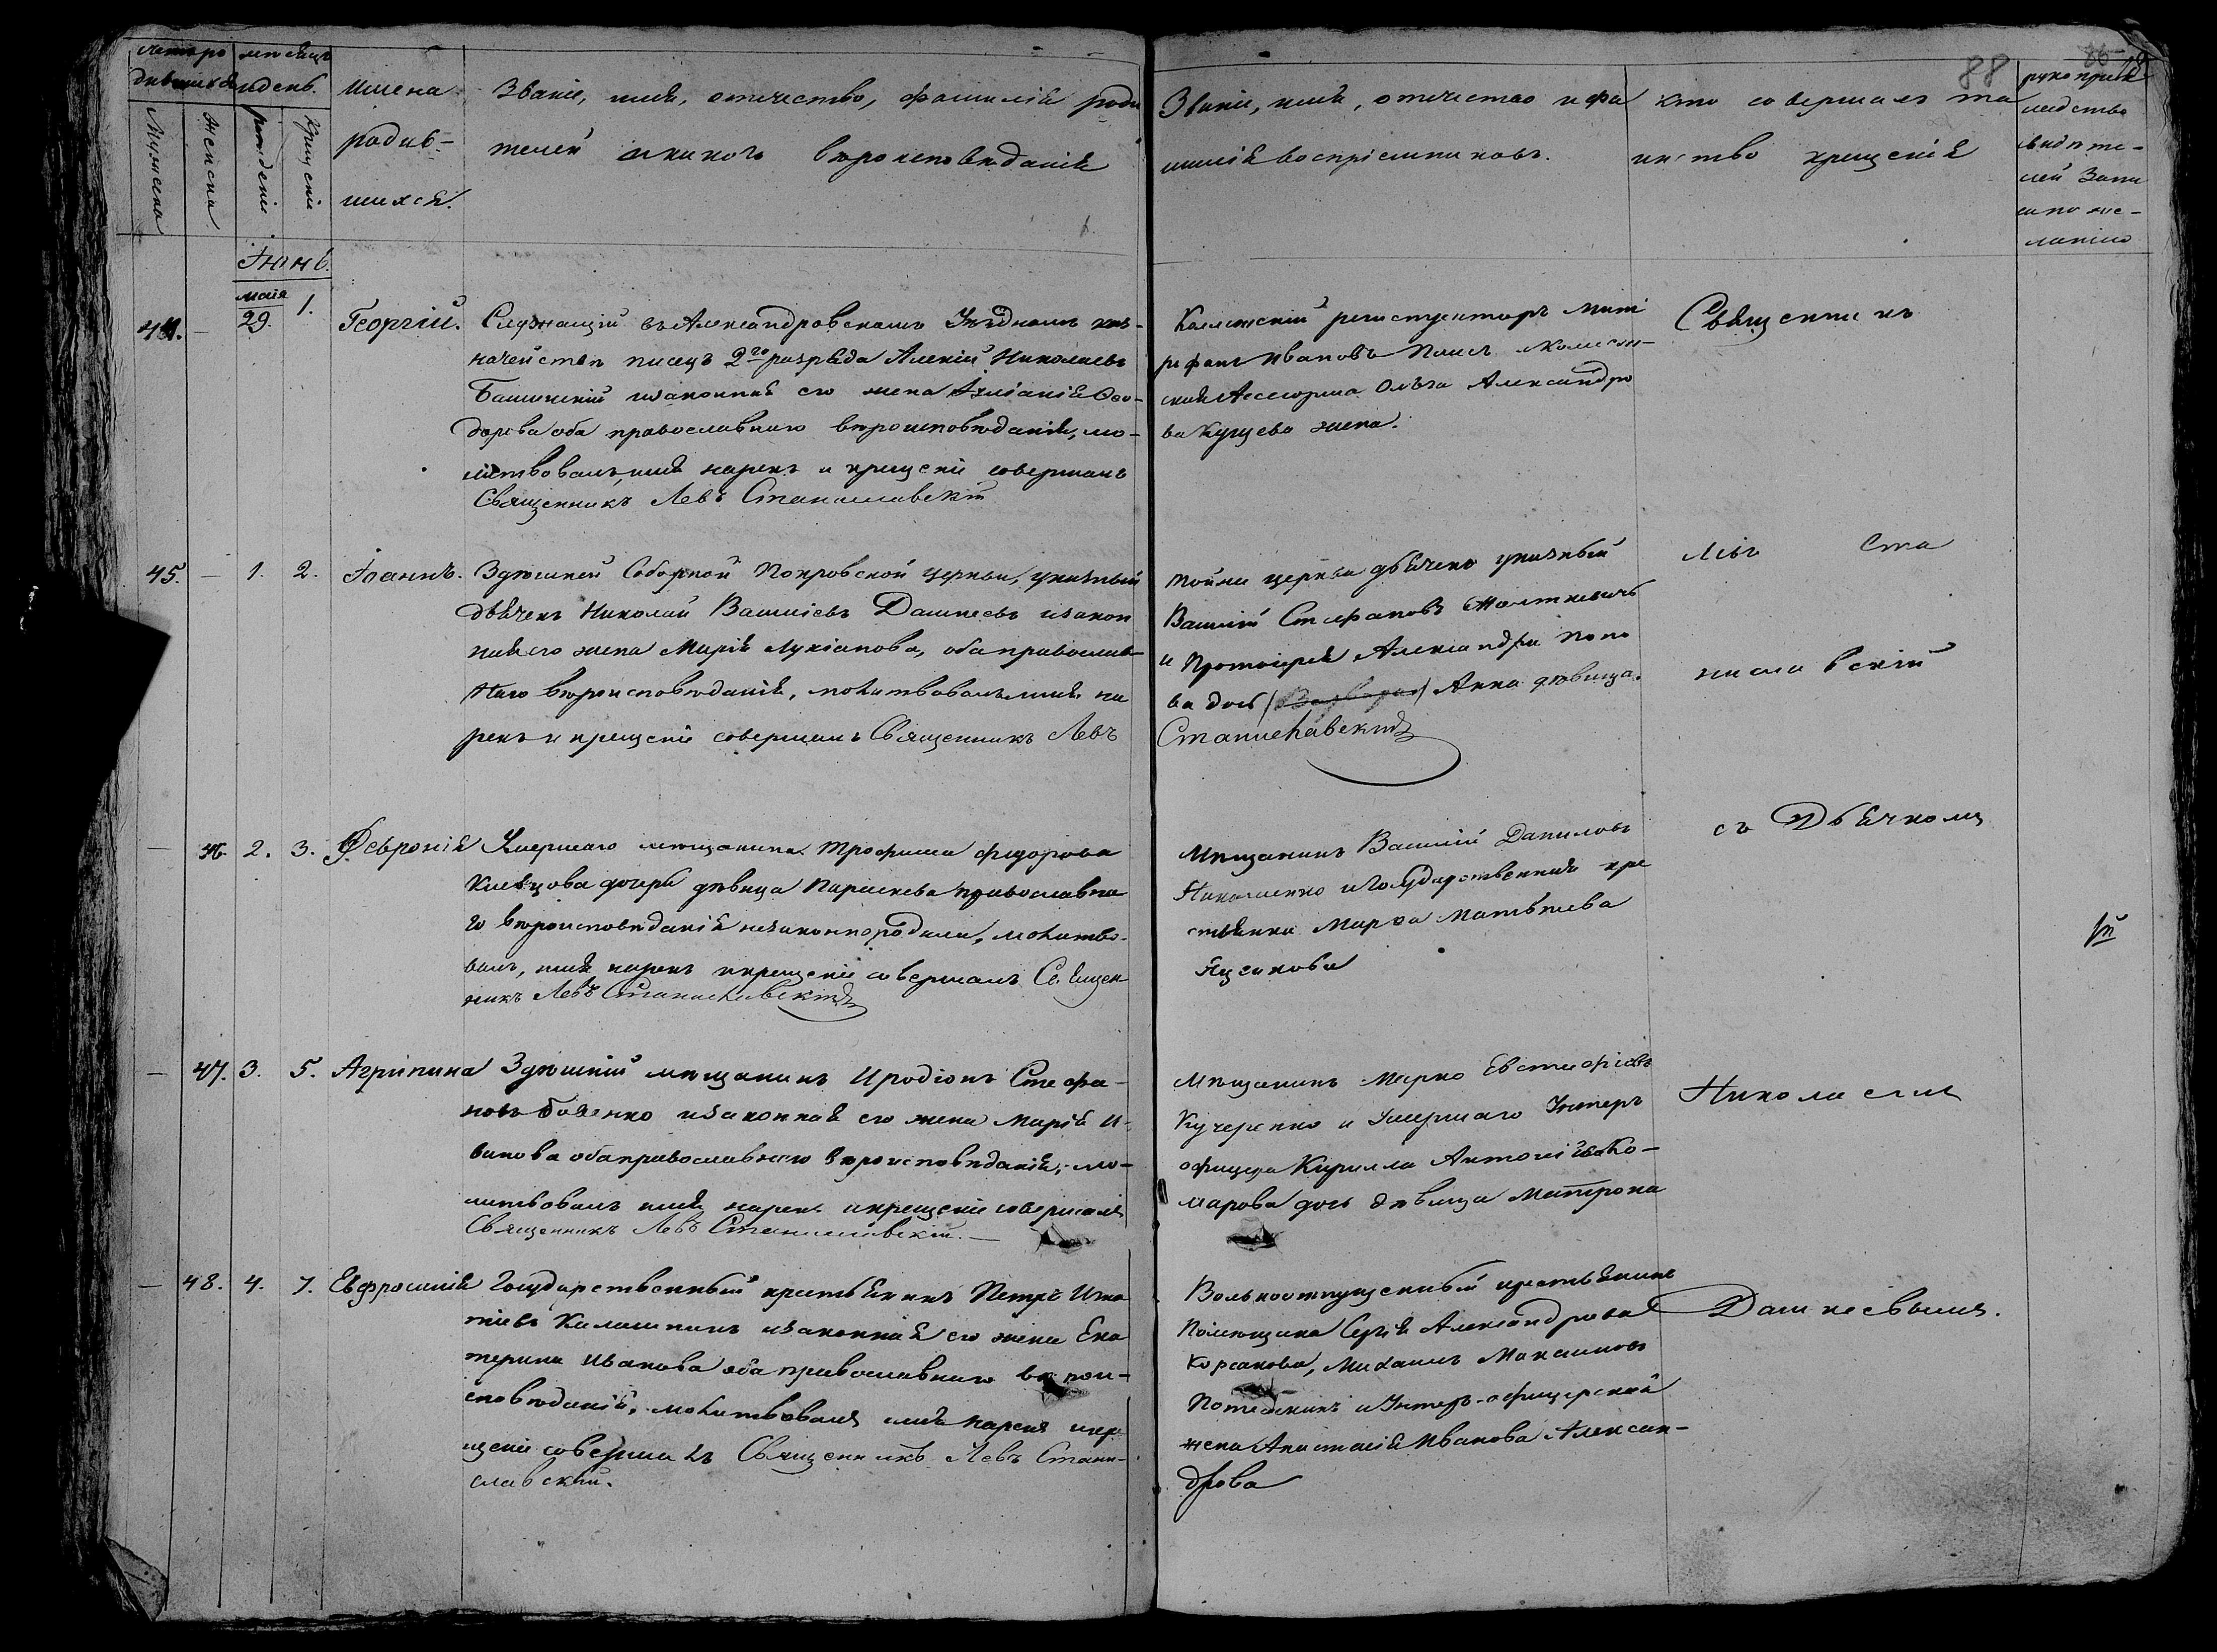 88
Имена
родив-
шихся.
Званіе, имя, отчество, фамилія роди
телей и какого вѣроисповѣданія
Званіе, имя, отчество и фа
милія воспріемниковъ.
кто совершалъ та
инство крещенія
рукоприк
ладство
свидѣте-
лей записи
по же-
ланію
мѣсяцъ
и день.
Мужеска
Женска
рожденіе
крещеніе
Іюнь.
мая
29.
1.
44.
Георгій.
Служащій въ Александровскомъ Уѣздномъ каз-
начействѣ писецъ 2го разряда Алексій Николаевъ
Башинскій и законная его жена Ѳео-
дорова оба православнаго вѣроисповѣданія, мо-
литвовалъ, имя нарекъ и крещеніе совершалъ
Священникъ Левъ Станиславскій
Коллежскій регистраторъ Мит
рофанъ Ивановъ и Коллеж-
ская Ассесорша Ольга Александро
ва Кущева жена.
Священникъ
45. — 1. 2. Іоаннъ.
Здѣшней Соборной Покровской церкви, указный
дьячекъ Николай Василіевъ Дашкеевъ и закон
ная его жена Марія Лукіанова, оба православ-
наго вѣроисповѣданія, молитвовалъ имя на
рекъ и крещеніе совершалъ Священникъ Левъ
Той же церкви дьячекъ указный
Василій Стефановъ
и Протоіерея Александра Попо
ва дочь Анна дѣвица.
Станиславскій
Левъ Ста
ниславскій
— 46. 2. 3. Февронія
Умершаго мѣщанина Трофима Федорова
дочерь дѣвица Параскева православна
го вѣроисповѣданія незаконно родила, молитво-
валъ, имя нарекъ и крещеніе совершалъ Священ-
никъ Левъ Станиславскій
Мѣщанинъ Василій Даниловъ
Николаенко и Государственная кре
стьянка Марѳа Матвѣева
Яценкова
съ Дьячкомъ
— 47. 3. 5. Агрипина
Здѣшній мѣщанинъ Иродіонъ Стефа-
новъ Боженко и законная его жена Марія И-
ванова оба православнаго вѣроисповѣданія, мо-
литвовалъ имя нарекъ и крещеніе совершалъ
Священникъ Левъ Станиславскій.—
Мѣщанинъ Марко Евстафіевъ
Кучеренко и Умершаго Унтеръ
офицера Кирилла Антоніева Ко-
марова дочь дѣвица Матрона
Николаемъ
— 48. 4. 7. Евфросинія
Государственный крестьянинъ Петръ Игна
тіевъ Калашникъ и законная его жена Ека
терина Иванова оба православнаго вѣрои-
сповѣданія, молитвовалъ имя нарекъ и кре
щеніе совершалъ Священникъ Левъ Стани-
славскій.
Вольноотпущенный крестьянинъ
Помѣщика Сергія Александрова
Корсакова, Михаилъ Максимовъ
Потемкинъ и Унтеръ-офицерская
жена Анастасія Иванова Алексан-
дрова
Дашкеевымъ.